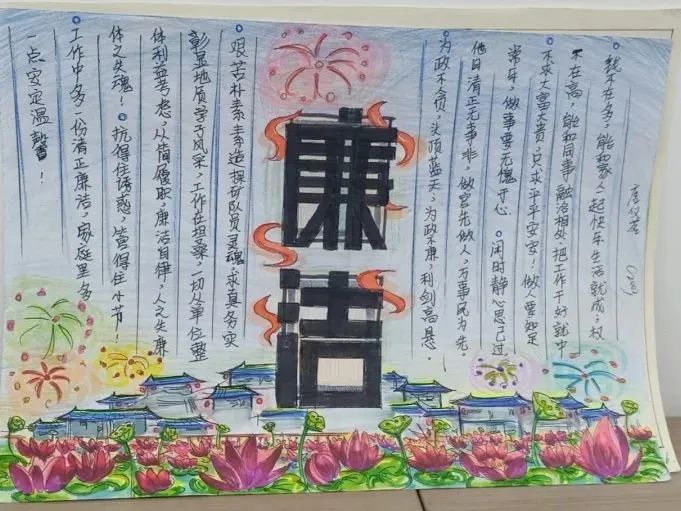 钱不在多，能和家人一起快乐生活就成；权
不在高，能和同事融洽相处，把工作干好就中
不求大富大贵，只求平平安安！做人要知足
常乐，做事要无愧于心。闲时静心思己过
他日清正无事非，做官先做人，万事民为先。
为政不贪，头顶蓝天，为政不廉，利剑高悬。
廉洁
艰苦朴素，素造探矿队员灵魂，求真务实
彰显地质学子风采，工作在坦桑，一切从单位整
体利益考虑，从简履职，廉洁自律，人之失廉
体之失魂！抗得住诱惑，管得住小节！
工作中多一份清正廉洁，家庭里多
一点安定温馨！